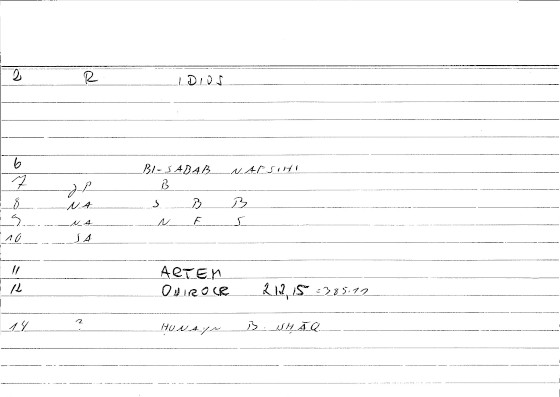 2 R IDIOS
6 BI-SABAB NAFSIHI
7 JP B
8 NA S B B
9 NA N F S
10 SA
11 ARTEM
12 ONIROCR 212,15 = 385.11
14 ? ḤUNAYN B. ISḤĀQ